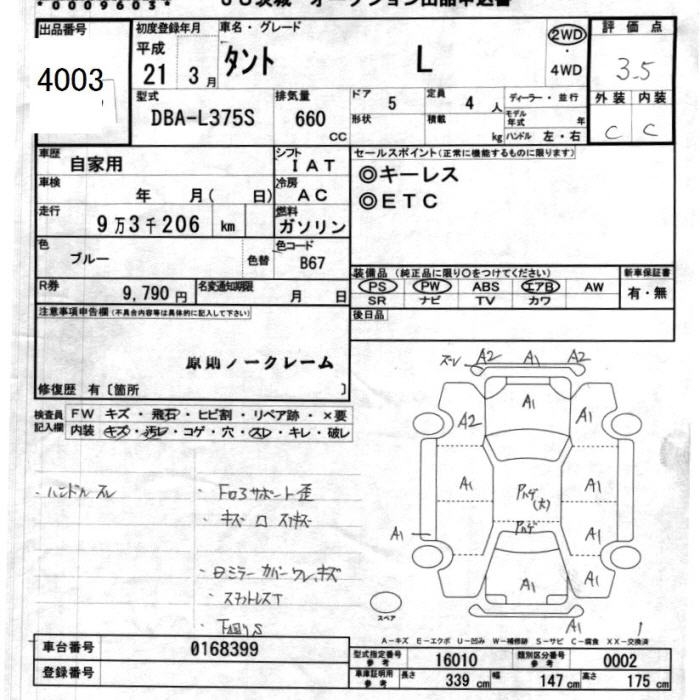 * 00096034 *
オークション出品申込書
出品番号
4003
初度登録年月
平成
21 3月
車名・グレード
タント L
2WD
・
4WD
評価点
3.5
外装 内装
C C
型式
DBA-L375S
排気量
660
CC
ドア 5
定員 4 人
形状
積載 kg
ディーラー・並行
モデル年式 年
ハンドル 左・右
車歴
自家用
シフト
IAT
車検
年 月( 日)
冷房
AC
走行
9万3千206 km
燃料
ガソリン
色
ブルー
色替
色コード
B67
セールスポイント(正常に機能するものに限ります)
◎キーレス
◎ETC
R券
9,790円
名変通知期限
月 日
装備品 (純正品に限り○をつけてください)
PS PW ABS エアB AW
SR ナビ TV カワ
新車保証書
有・無
後日品
注意事項申告欄(不具合内容等は具体的に記入して下さい)
原則ノークレーム
修復歴 有〔箇所 〕
検査員
記入欄
FW キズ・飛石・ヒビ割・リペア跡・×要
内装 キズ・汚レ・コゲ・穴・スレ・キレ・破レ
・ハンドルスレ
・Fロアサポート歪
・キズ
・ミラーカバーワレ、キズ
ズレ A2 A1 A2
A1
A2 A1
A1 Pハゲ(大) A1
Pハゲ
A1 A1
A1 A1
A1
スペア
A-キズ E-エクボ U-凹み W-補修跡 S-サビ C-腐食 XX-交換済
車台番号
0168399
登録番号
型式指定番号
参考
16010
類別区分番号
参考
0002
車庫証明用
参考
長さ 339 cm 幅 147 cm 高さ 175 cm